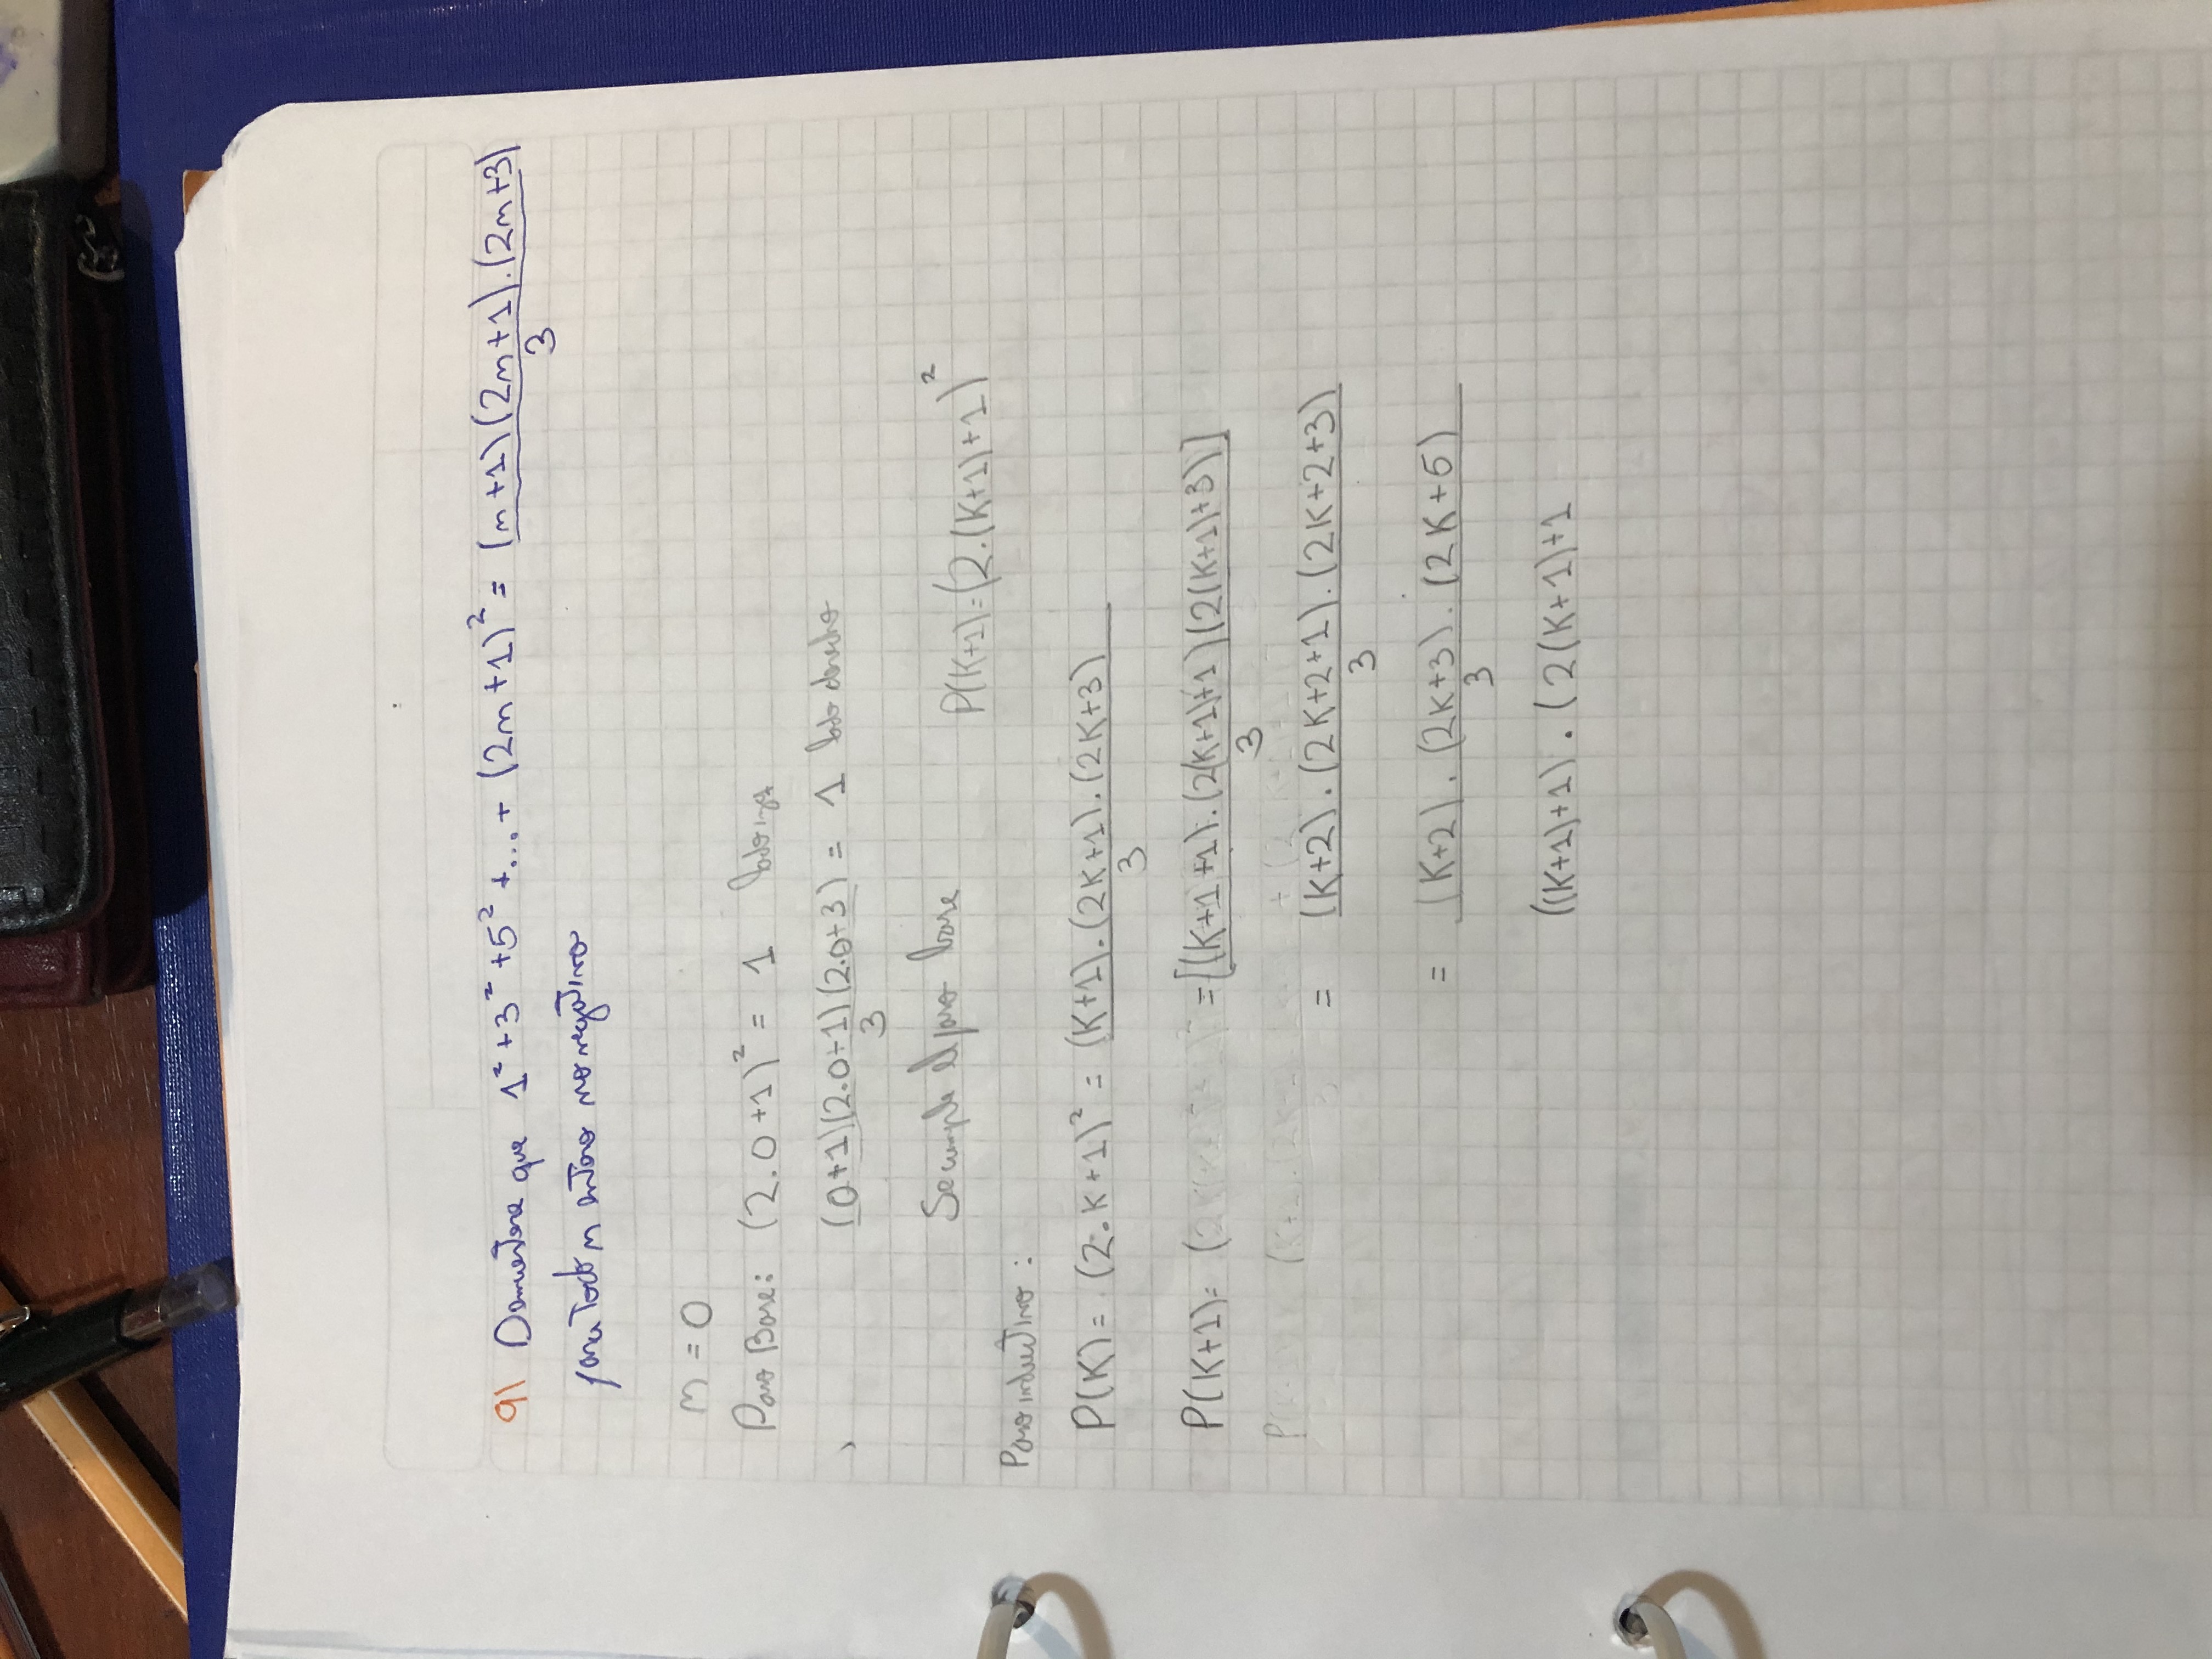 9) Demuestre que 1² + 3² + 5² + ... + (2n+1)² = (n+1)(2n+1).(2n+3)
3
para todo n entero no negativo
n = 0
Paso Base: (2.0+1)² = 1 lado izq
(0+1)(2.0+1)(2.0+3) = 1 lado derecho
3
Se cumple el paso base
P(K+1)=(2.(K+1)+1)²
Paso inductivo:
P(K)= (2.K+1)² = (K+1).(2K+1).(2K+3)
3
P(K+1)= ( =[(K+1+1).(2(K+1)+1)(2(K+1)+3)]
3
= (K+2).(2K+2+1).(2K+2+3)
3
= (K+2).(2K+3).(2K+5)
3
((K+1)+1).(2(K+1)+1